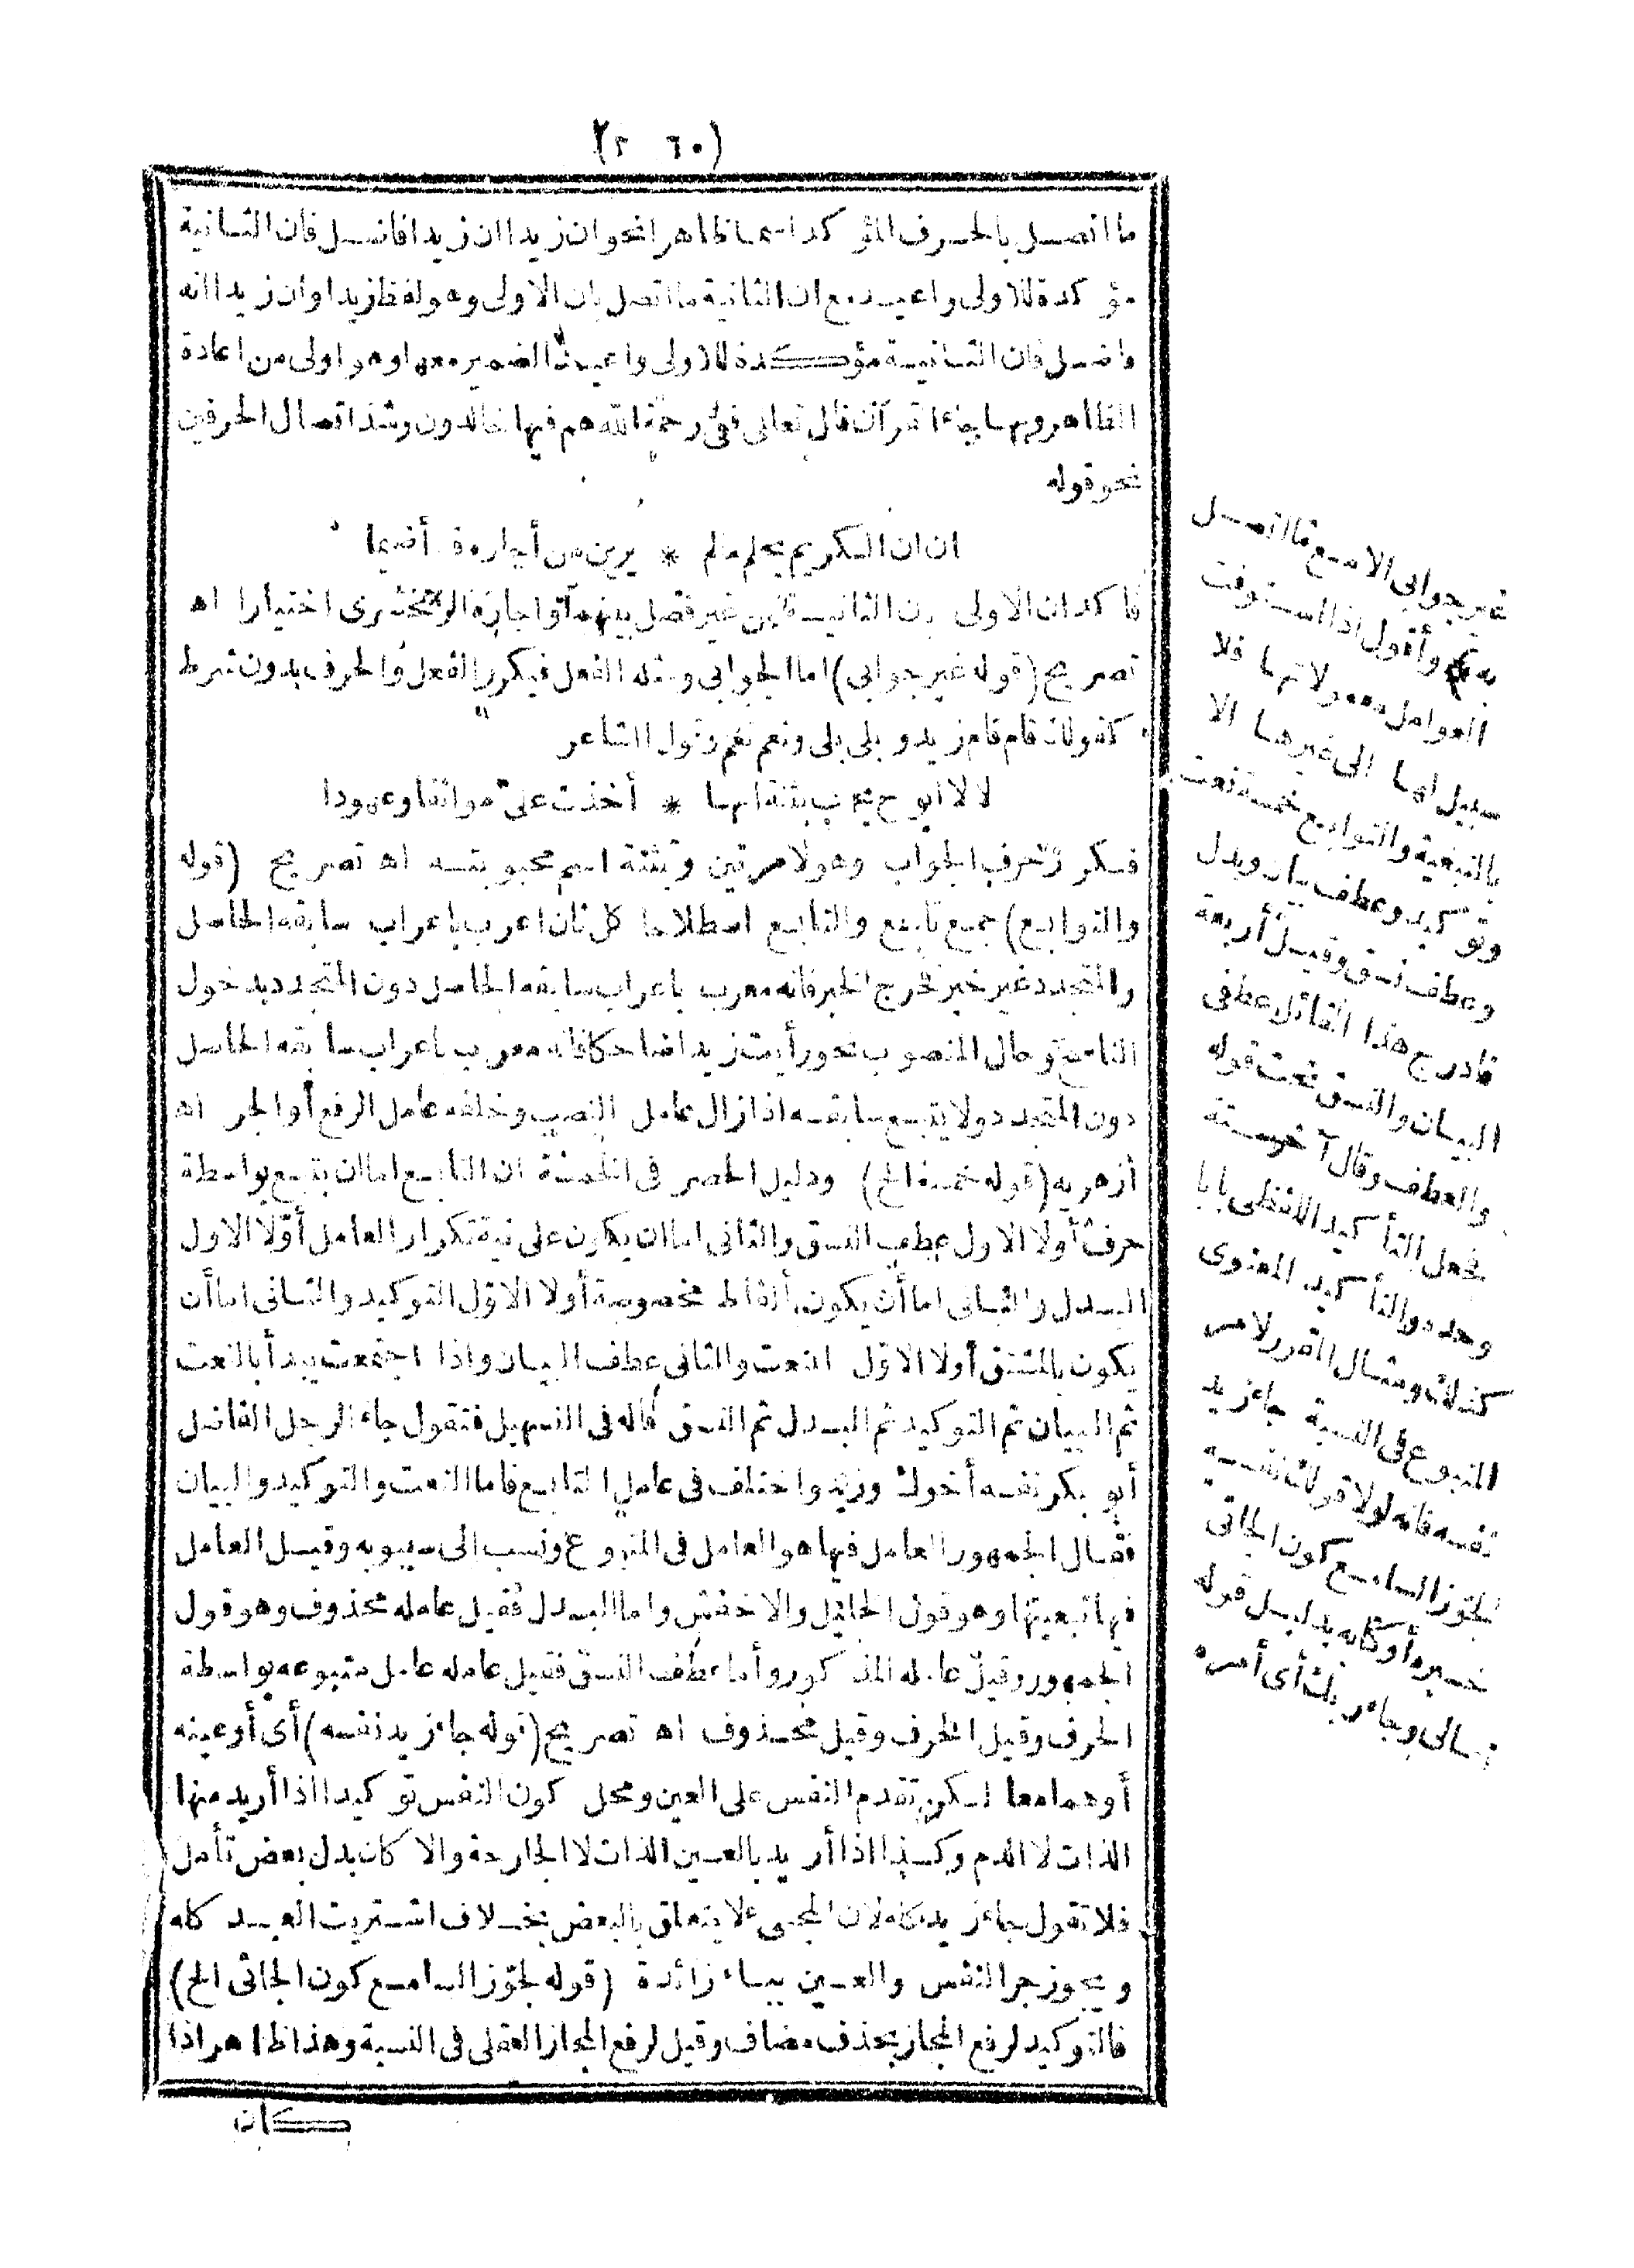 (٢٦٠)
ما اتصل بالحرف المؤكد اسما ظاهرا نحو ان زيدا ان زيدا فاضل فان الثانية
مؤكدة للاولى واعيد مع ان الثانية ما اتصل بان الاولى وهو لفظ زيدا وان زيدا انه
فاضل فان الثانية مؤكدة للاولى واعيد الضمير معها وهو اولى من اعادة
الظاهر وبها جاء القرآن قال تعالى ففي رحمة الله هم فيها خالدون وشذ اتصال الحرفين
نحو قوله
ان ان الكريم يحلم مالم * يرين من أجاره قد أضيما
فاكد ان الاولى بان الثانية من غير فصل بينهما واجازه الزمخشرى اختيارا اه
تصريح (قوله غير جوابى) اما الجوابى ومثله الفعل فيكرر الفعل والحرف بدون شرط
كقولك قام قام زيد و بلى بلى ونعم نعم وقول الشاعر
لا لا ابوح بحب بثنة انها * أخذت علىّ مواثقا وعهودا
فكرر حرف الجواب وهو لا مرتين وبثنة اسم محبوبته اه تصريح (قوله
والتوابع) جمع تابع والتابع اصطلاحا كل ثان اعرب باعراب سابقه الحاصل
والمتجدد غير خبر فخرج الخبر فانه معرب باعراب سابقه الحاصل دون المتجدد بدخول
الناسخ وحال المنصوب نحو رأيت زيدا ضاحكا فانه معرب باعراب سابقه الحاصل
دون المتجدد ولا يتبع سابقه اذا زال عامل النصب وخلفه عامل الرفع أو الجر اه
أزهريه (قوله خمسة الخ) ودليل الحصر فى الخمسة ان التابع اما ان يتبع بواسطة
حرف أولا الاول عطف النسق والثانى اما ان يكون على نية تكرار العامل أوّلا الاول
البدل والثانى اما أن يكون بألفاظ مخصوصة أولا الاوّل التوكيد والثانى اما أن
يكون بالمشتق أولا الاوّل النعت والثانى عطف البيان واذا اجتمعت يبدأ بالنعت
ثم البيان ثم التوكيد ثم البدل ثم النسق قاله فى التسهيل فتقول جاء الرجل الفاضل
أبو بكر نفسه أخوك وزيد واختلف فى عامل التابع فاما النعت والتوكيد والبيان
فقال الجمهور العامل فيها هو العامل فى المتبوع ونسب الى سيبويه وقيل العامل
فيها تبعيتها وهو قول الخليل والاخفش واما البدل فقيل عامله محذوف وهو قول
الجمهور وقيل عامله المذكور وأما عطف النسق فقيل عامله عامل متبوعه بواسطة
الحرف وقيل الحرف وقيل محذوف اه تصريح (قوله جاء زيد نفسه) أى أو عينه
أو هما معا لكن تقدم النفس على العين ومحل كون النفس توكيدا اذا أريد منها
الذات لا الدم وكذا اذا أريد بالعين الذات لا الجارحة والا كان بدل بعض تأمل
فلا تقول جاء زيد كله لان المجىء لا يتعلق بالبعض بخلاف اشتريت العبد كله
ويجوز جر النفس والعين بباء زائدة (قوله لجوّز السامع كون الجائى الخ)
فالتوكيد لرفع المجاز بحذف مضاف وقيل لرفع المجاز العقلى فى النسبة وهذا ظاهر اذا
كان
غير جوابى الا مع ما اتصل
به وأقول اذا استوفت
العوامل معمولاتها فلا
سبيل لها الى غيرها الا
بالتبعية والتوابع خمسة نعت
وتوكيد وعطف بيان وبدل
وعطف نسق وقيل أربعة
فادرج هذا القائل عطفى
البيان والنسق تحت قوله
والعطف وقال آخر ستة
فجعل التأكيد اللفظى بابا
وحده والتأكيد المعنوى
كذلك ومثال المقرر لامر
المتبوع فى النسبة جاء زيد
نفسه فانه لولا قولك نفسه
لجوّز السامع كون الجائى
خبره أو كتابه بدليل قوله
تعالى وجاء ربك أى أمره